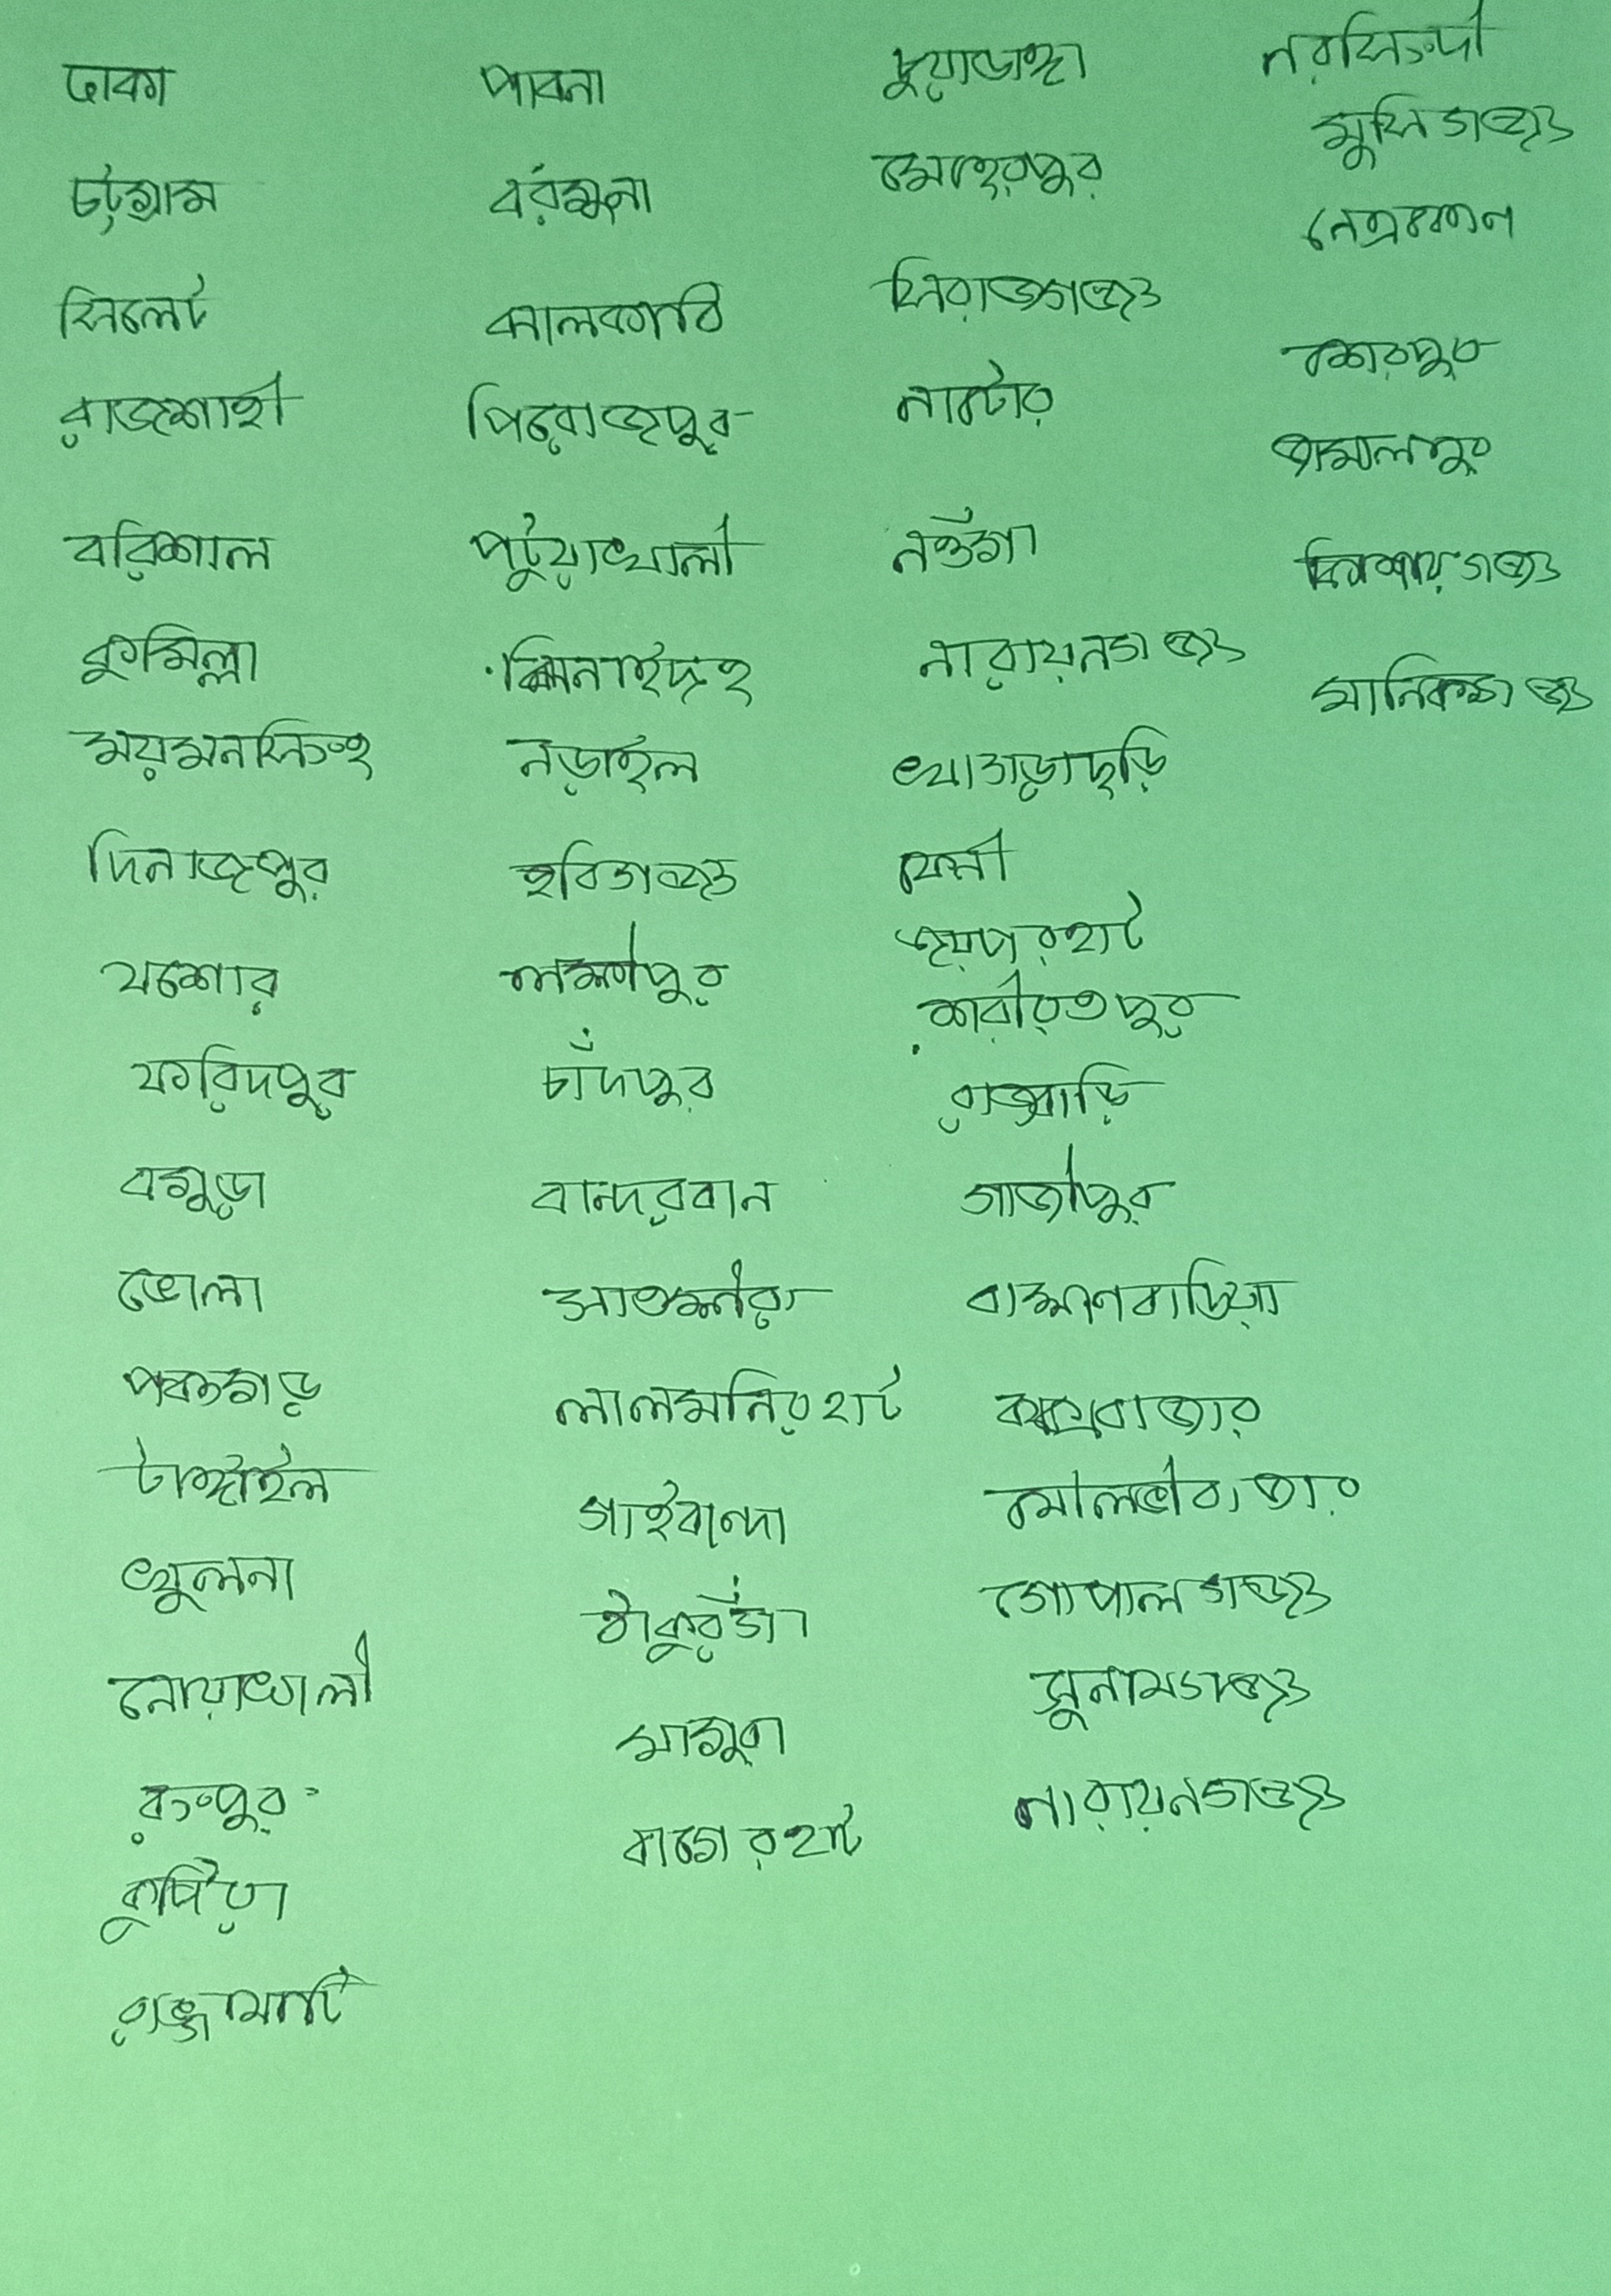 ঢাকা
চট্রগ্রাম
সিলেট
রাজশাহী
বরিশাল
কুমিল্লা
ময়মনসিংহ
দিনাজপুর
যশোর
ফরিদপুর
বগুড়া
ভোলা
পঞ্চগড়
টাঙ্গাইল
খুলনা
নোয়াখালী
রংপুর
কুষ্টিয়া
রাঙ্গামাটি
পাবনা
বরগুনা
ঝালকাঠি
পিরোজপুর
পটুয়াখালী
ঝিনাইদহ
নড়াইল
হবিগঞ্জ
লক্ষ্মীপুর
চাঁদপুর
বান্দরবান
সাতক্ষীরা
লালমনিরহাট
গাইবান্দা
ঠাকুরগাঁ
মাগুরা
বাগেরহাট
চুয়াডাঙ্গা
মেহেরপুর
সিরাজগঞ্জ
নাটোর
নওগাঁ
নারায়নগঞ্জ
খাগড়াছড়ি
ফেনী
জয়পুরহাট
শরীয়তপুর
রাজবাড়ি
গাজীপুর
বাহ্মণবাড়িয়া
কক্সবাজার
মৌলভীবাজার
গোপালগঞ্জ
সুনামগঞ্জ
নারায়নগঞ্জ
নরসিংদী
মুন্সিগঞ্জ
নেত্রকোণা
শেরপুর
জামালপুর
কিশোরগঞ্জ
মানিকগঞ্জ